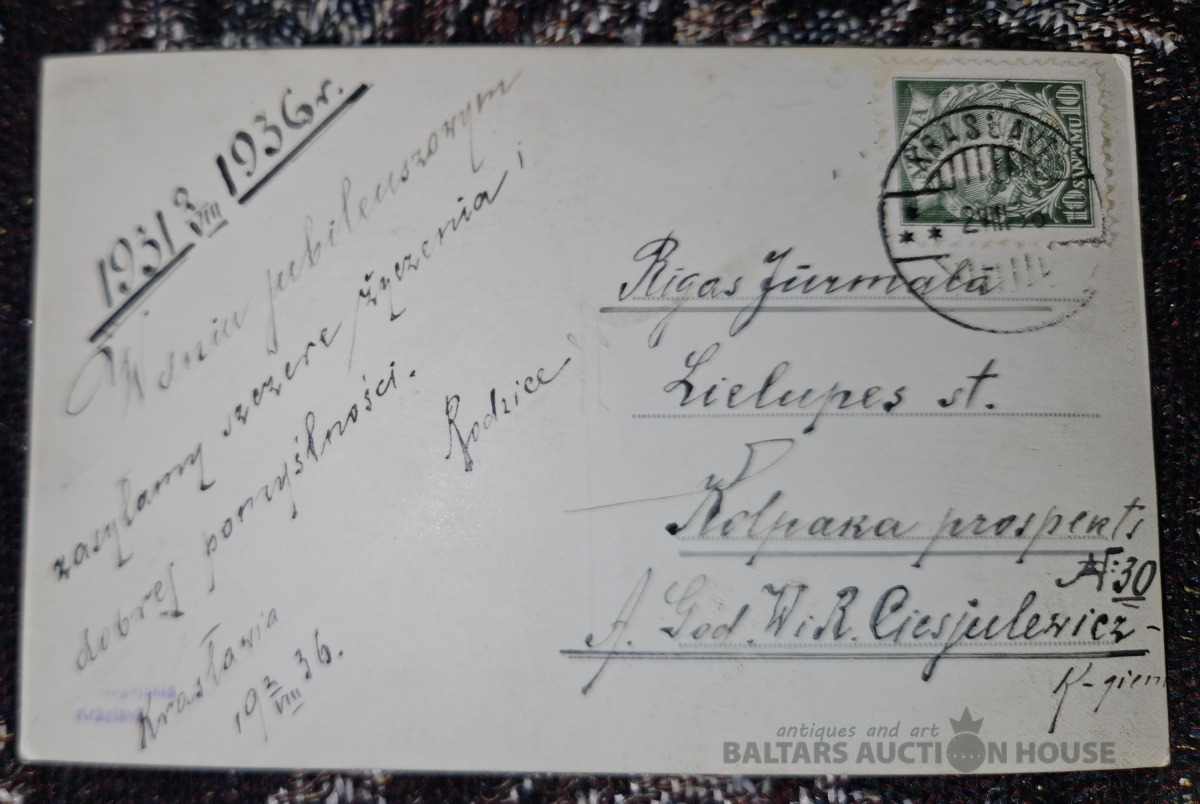 1931 3/VIII 1936 r.
W dniu jubileuszowym
zasyłamy szczere życzenia i
dobrej pomyślności.
Rodzice
Krasławia
19 2/VIII 36.
KRĀSLAVA
2 VIII
10 SANTIMU 10
Rīgas Jūrmalā
Lielupes st.
Kolpaka prospekts
№ 30
A. God. W. i R. Ciesjulewicz-
K-giem
Krāslavā
antiques and art
BALTARS AUCTION HOUSE